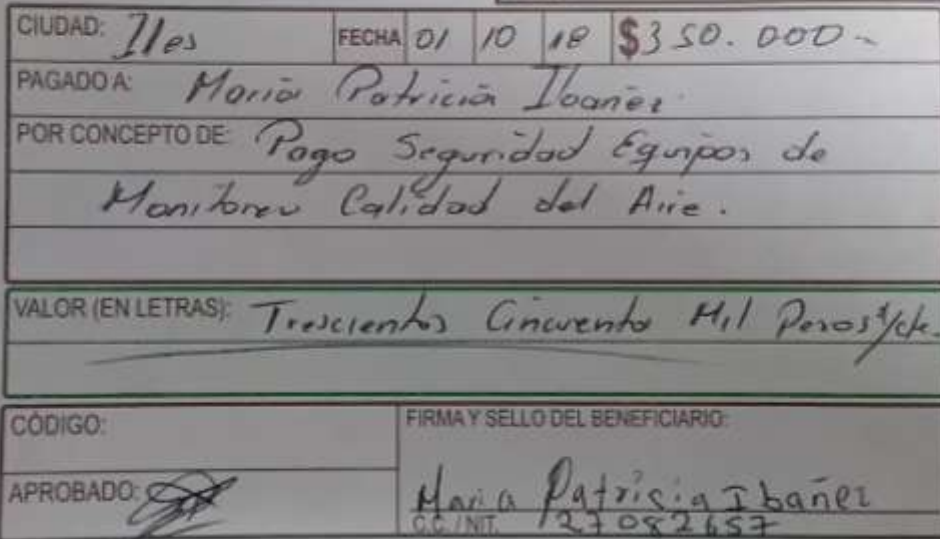 CIUDAD: Iles FECHA 01 10 18 $350.000-
PAGADO A: Maria Patricia Ibañez
POR CONCEPTO DE: Pago Seguridad Equipos de
Monitoreo Calidad del Aire.
VALOR (EN LETRAS): Trescientos Cincuenta Mil Pesos m/cte.
CÓDIGO:
FIRMA Y SELLO DEL BENEFICIARIO:
APROBADO:
Maria Patrisia Ibañez
C.C. / NIT. 27082657